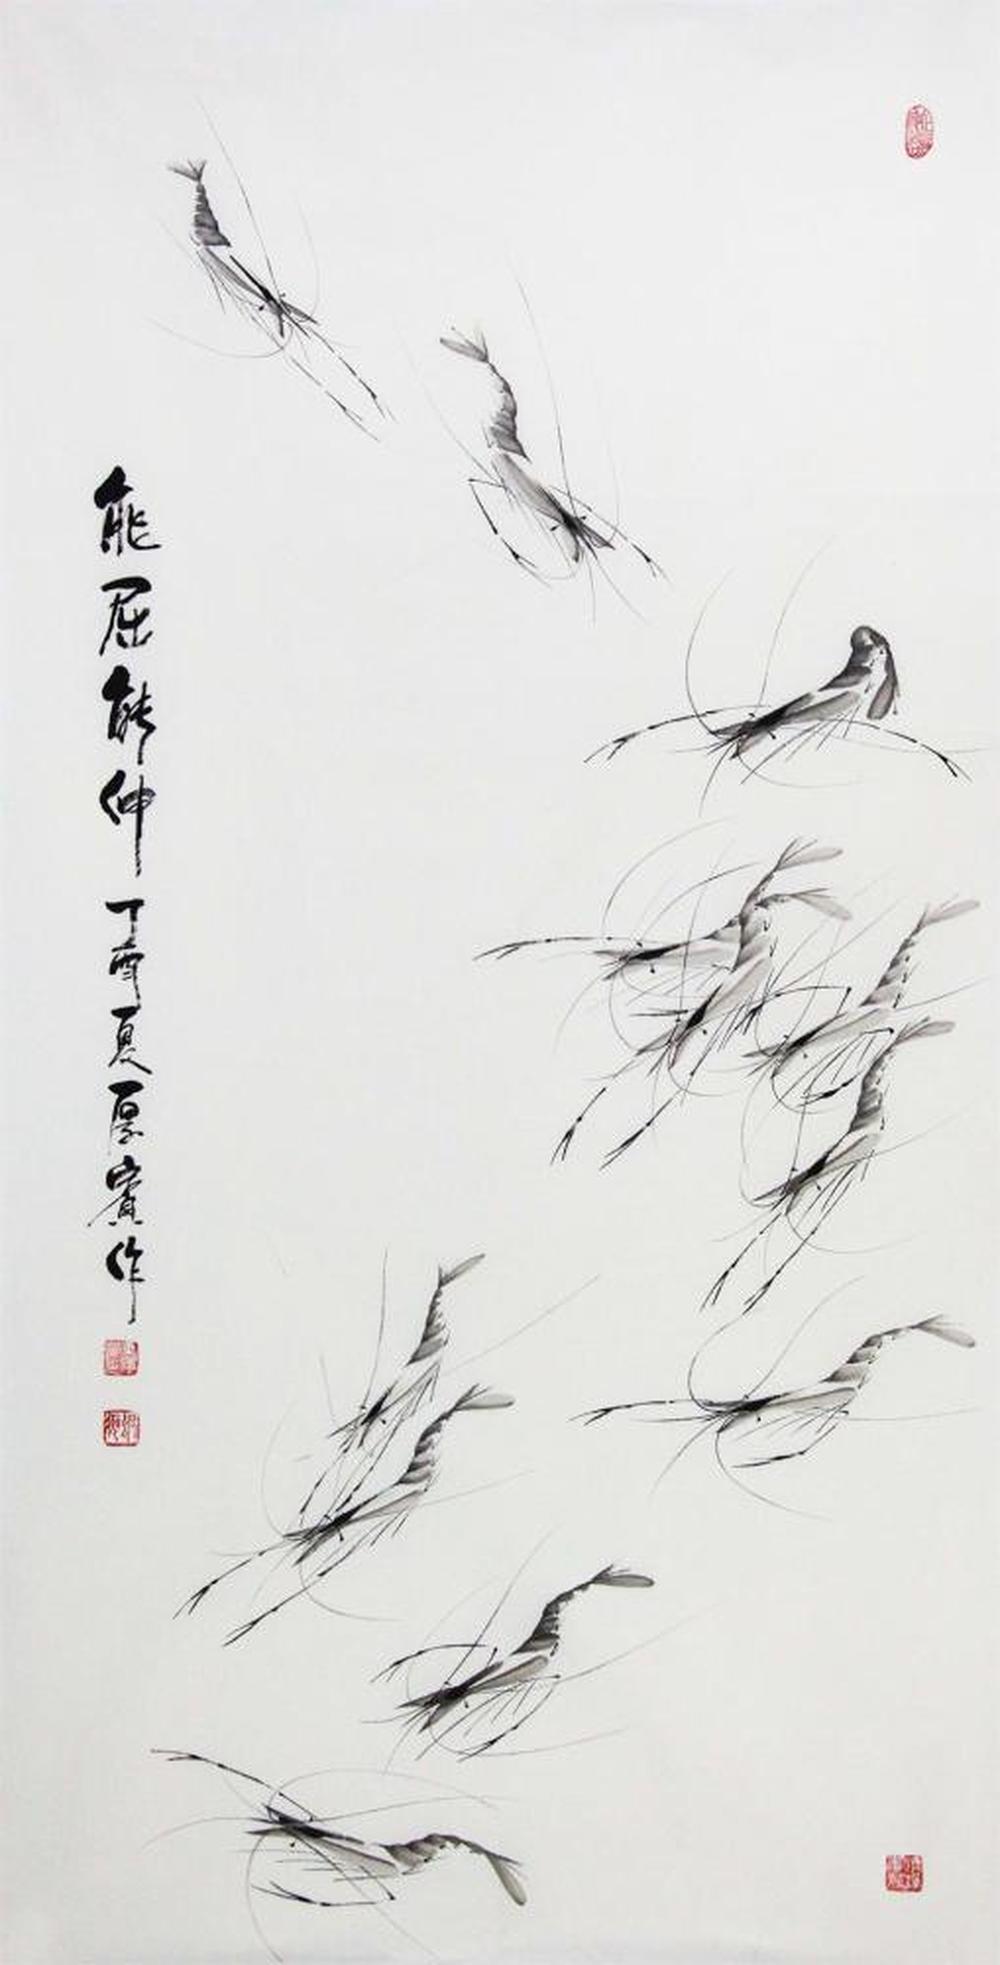 能屈能伸 丁酉夏厚宾作